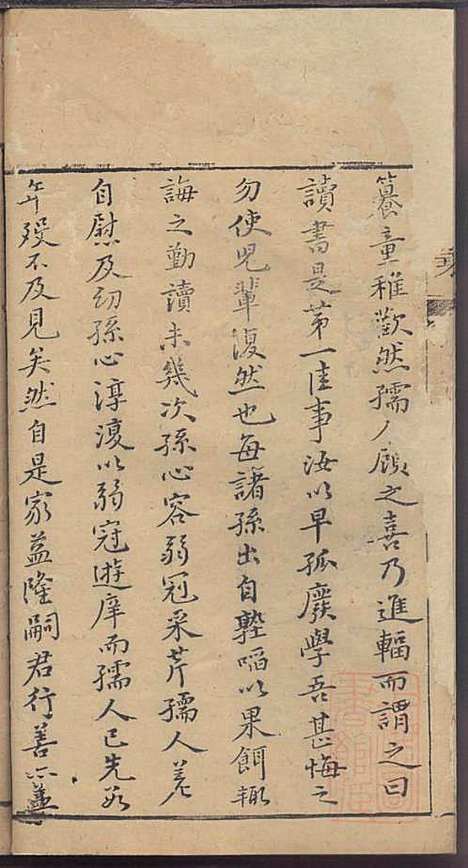 饔童稚歡然孺人顧之喜乃進輻而謂之曰
讀書是第一佳事汝以早孤廢學吾甚悔之
勿使兒輩復然也每諸孫出自塾啗以果餌輙
誨之勤讀未幾次孫心容弱冠采芹孺人差
自慰及幼孫心淳復以弱冠遊庠而孺人已先數
年歿不及見矣然自是家益隆嗣君行善亦益